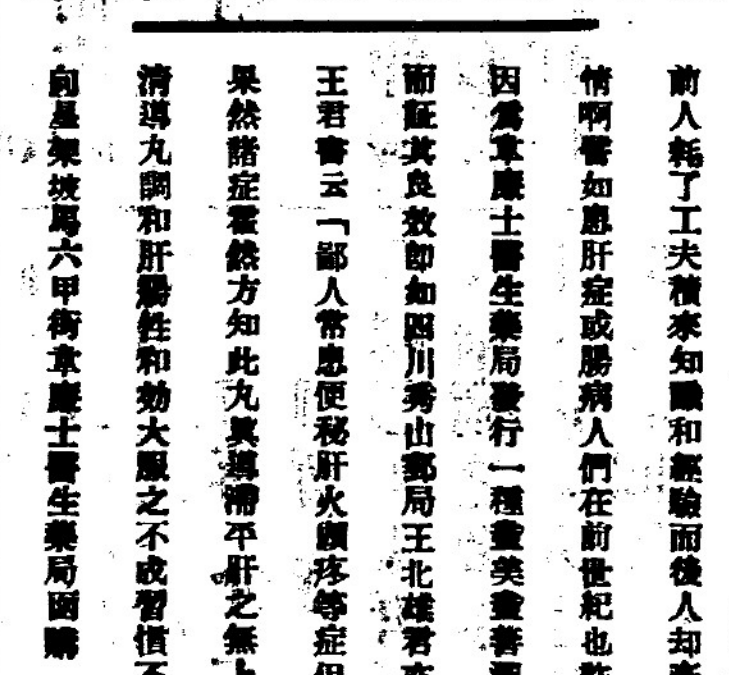 前人耗了工夫積來知識和經驗而後人却
情啊譬如患肝症或腸病人們在前世紀也
因爲韋廉士醫生藥局發行一種盡美盡善
而証其良效卽如四川秀山郵局王北雄君
王君書云「鄙人常患便秘肝火頭疼等症但
果然諸症霍然方知此丸眞導滯平肝之無上
清導丸調和肝腸性和効大服之不成習慣不
向星架坡馬六甲街韋廉士醫生藥局函購